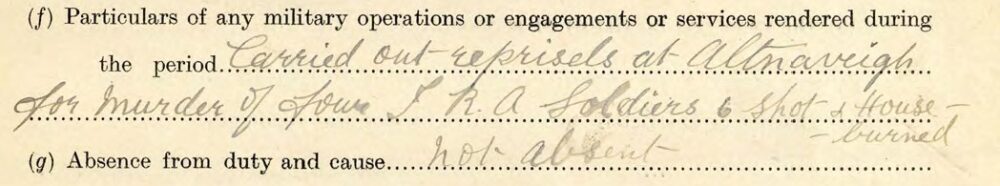 (f) Particulars of any military operations or engagements or services rendered during
the period Carried out reprisels at Altnaveigh
for Murder of four I R A Soldiers 6 shot & House-
-burned
(g) Absence from duty and cause Not absent